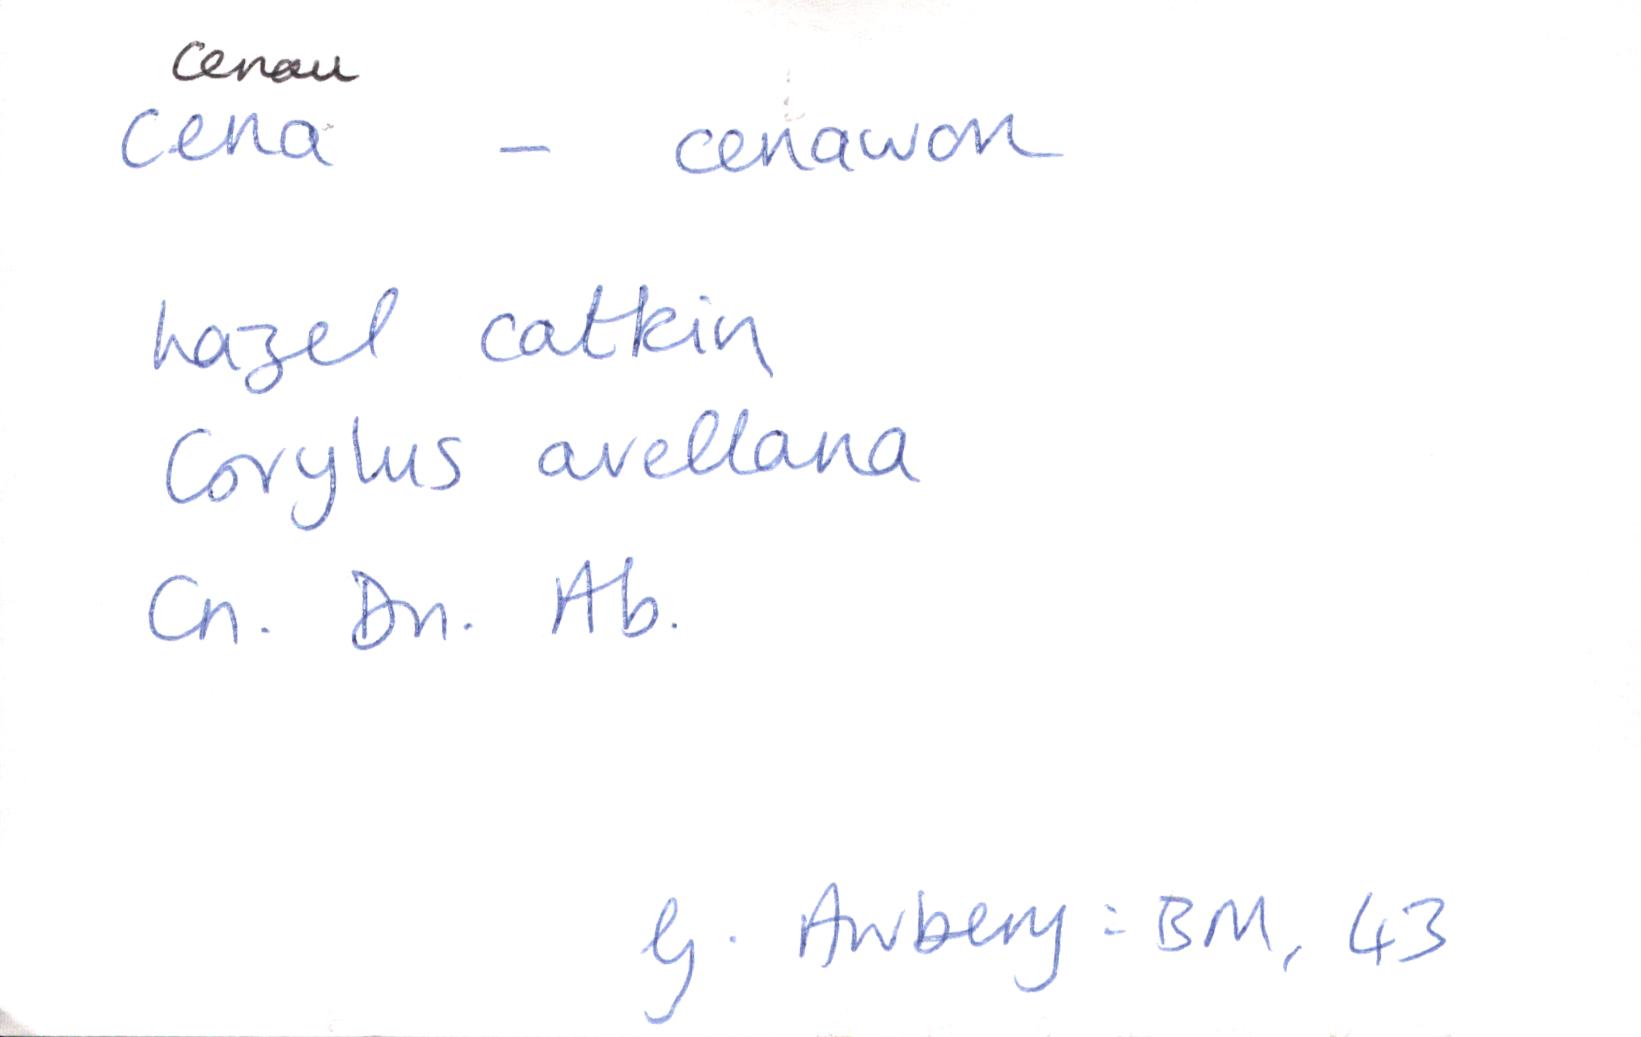 cenau
cena - cenawon
hazel catkin
Corylus avellana
Cn. Dn. Ab.
G. Awbery : BM, 43